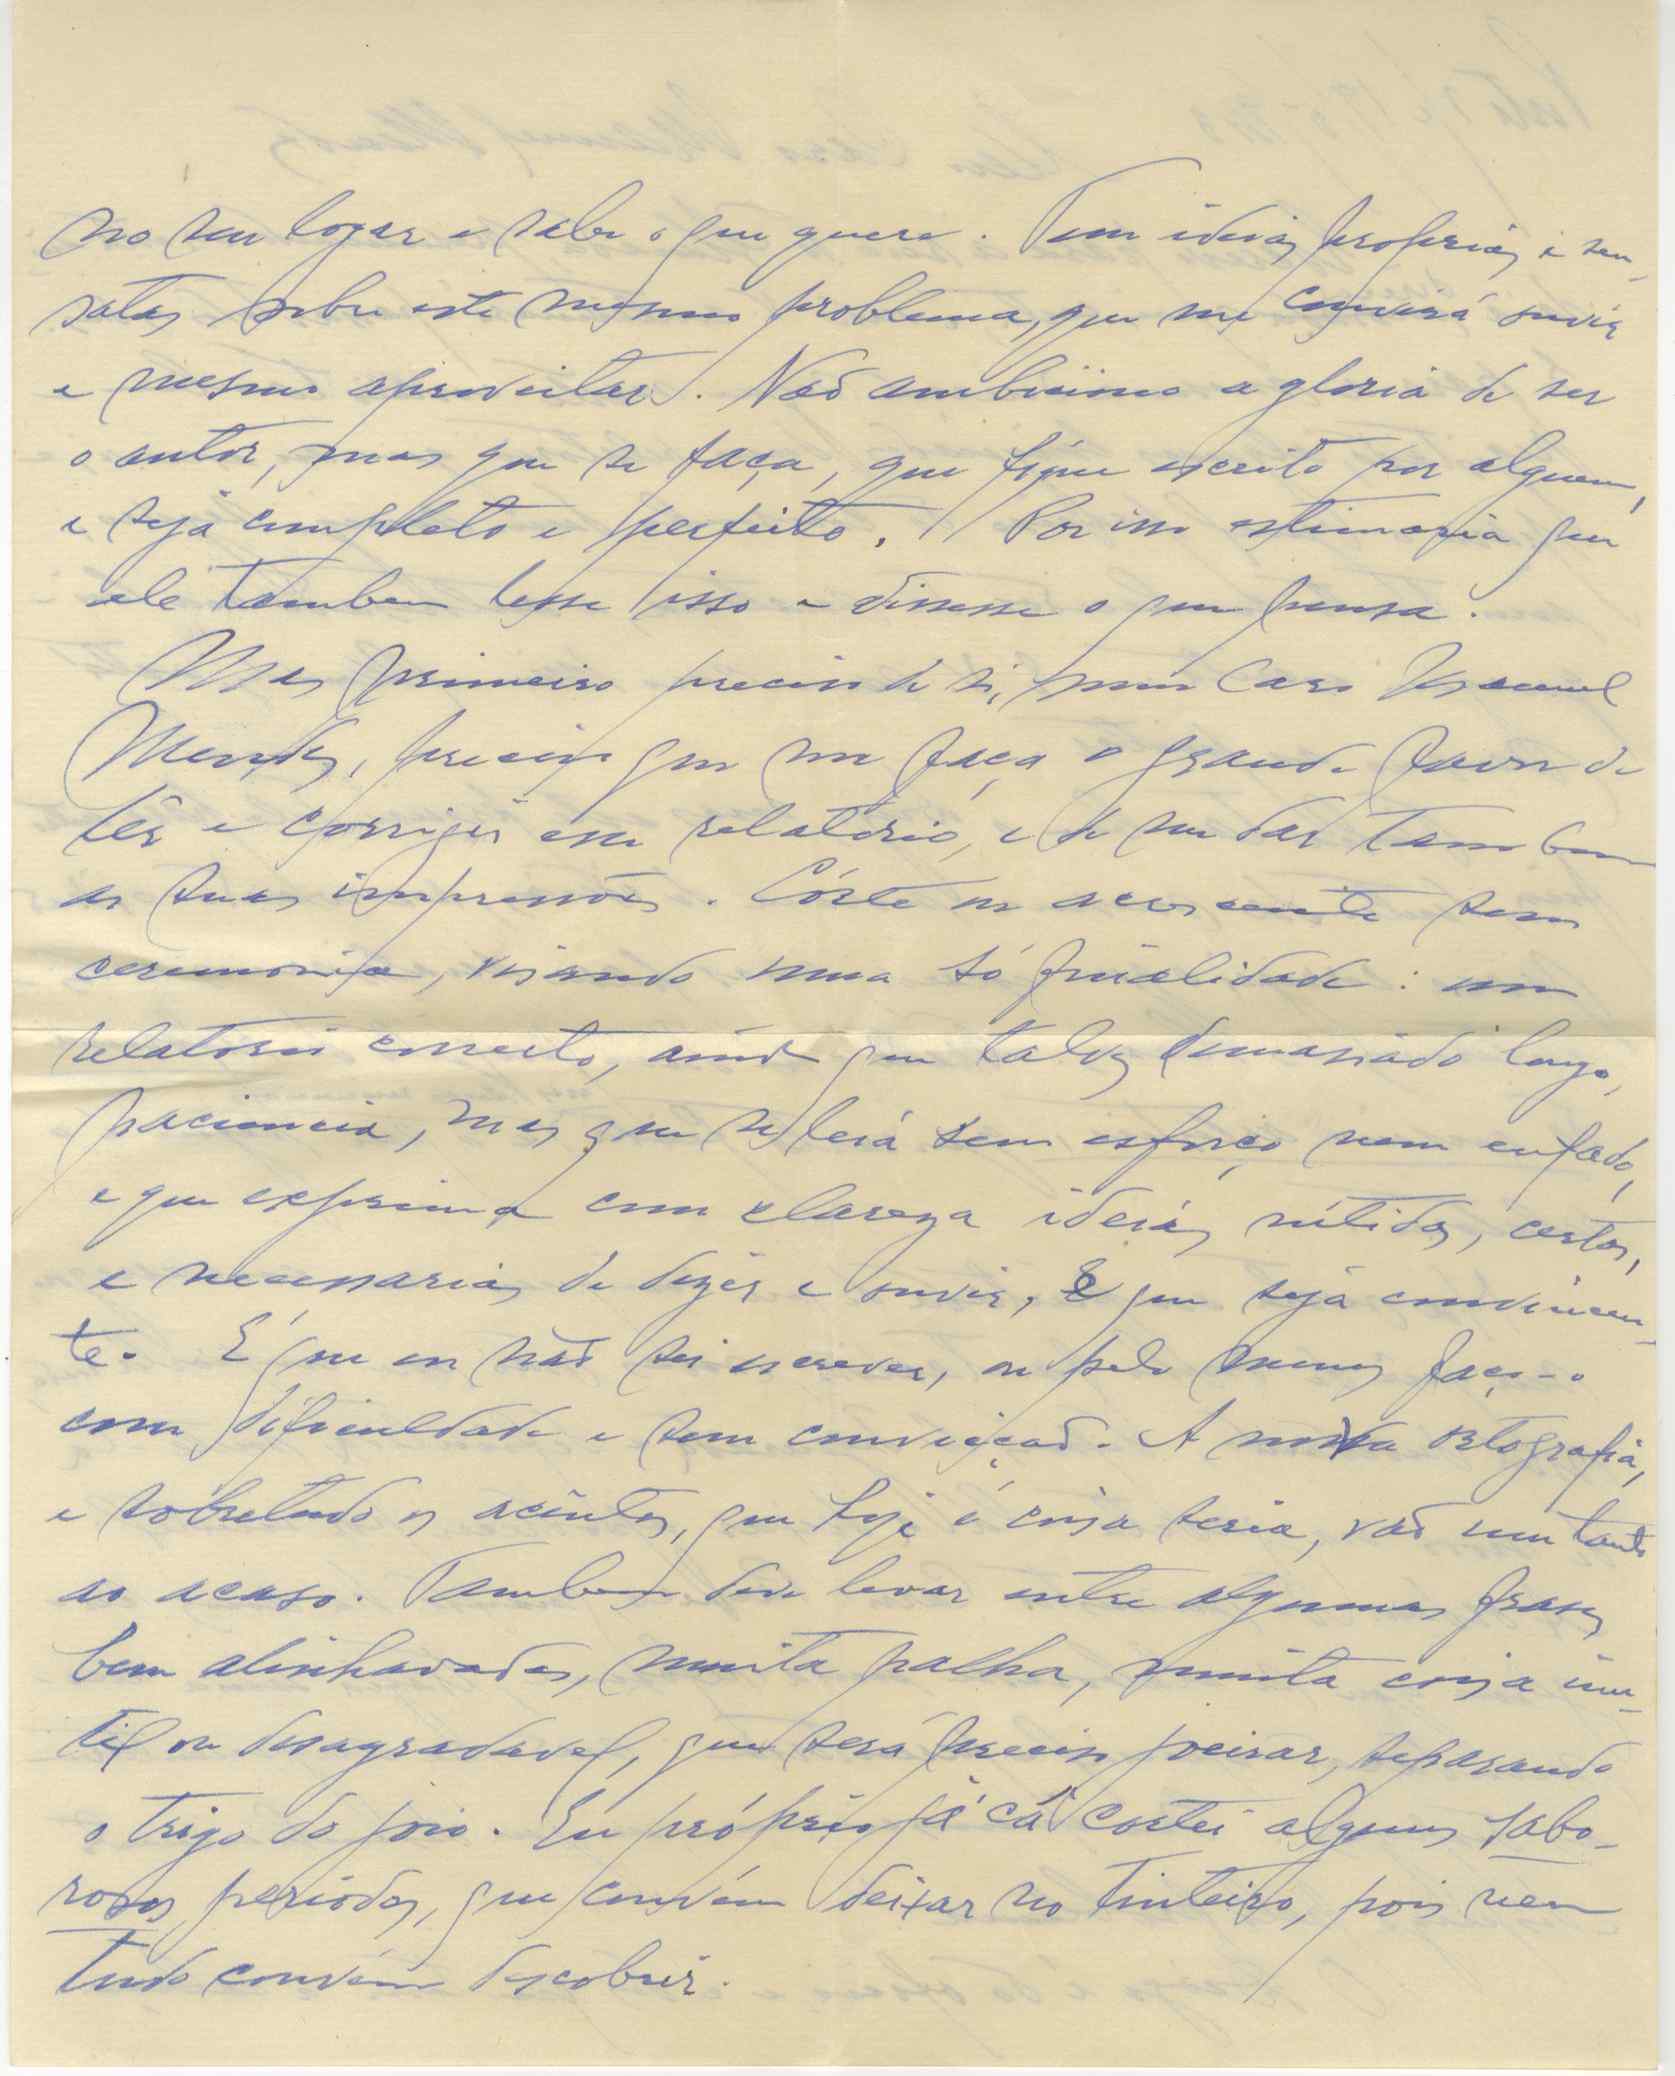 no seu logar e sabe o que quere. Tem ideias proprias e sen-
satas sobre este mesmo problema, que me convirá ouvir
e mesmo aproveitar. Não ambiciono a gloria de ser
o autor, mas que se faça, que fique escrito por alguem,
e seja completo e perfeito. Por isso estimaria que
ele tambem lesse isso e dissesse o que pensa.
Mas primeiro preciso de si, meu Caro Manuel
Mendes, preciso que me faça o grande favor de
lêr e corrigir esse relatório, e de me dar tambem
as suas impressões. Córte ou acrescente sem
ceremonia, visando uma só finalidade: um
relatorio correcto, ainda que talvez demasiado longo,
paciencia, mas que se leia sem esforço nem enfado,
e que exprima com clareza ideias nítidas, certas,
e necessarias de dizer e ouvir, e que seja convincen-
te. É que eu não sei escrever, ou pelo menos faço-o
com dificuldade e sem convicção. A nova ortografia,
e sobretudo os acentos, que hoje é coisa seria, vão um tanto
ao acaso. Tambem deve levar entre algumas frases
bem alinhavadas, muita palha, muita coisa inu-
til ou desagradavel, que será preciso joeirar, separando
o trigo do joio. Eu próprio já cá cortei alguns sabo-
rosos periodos, que convém deixar no tinteiro, pois nem
tudo convém descobrir.